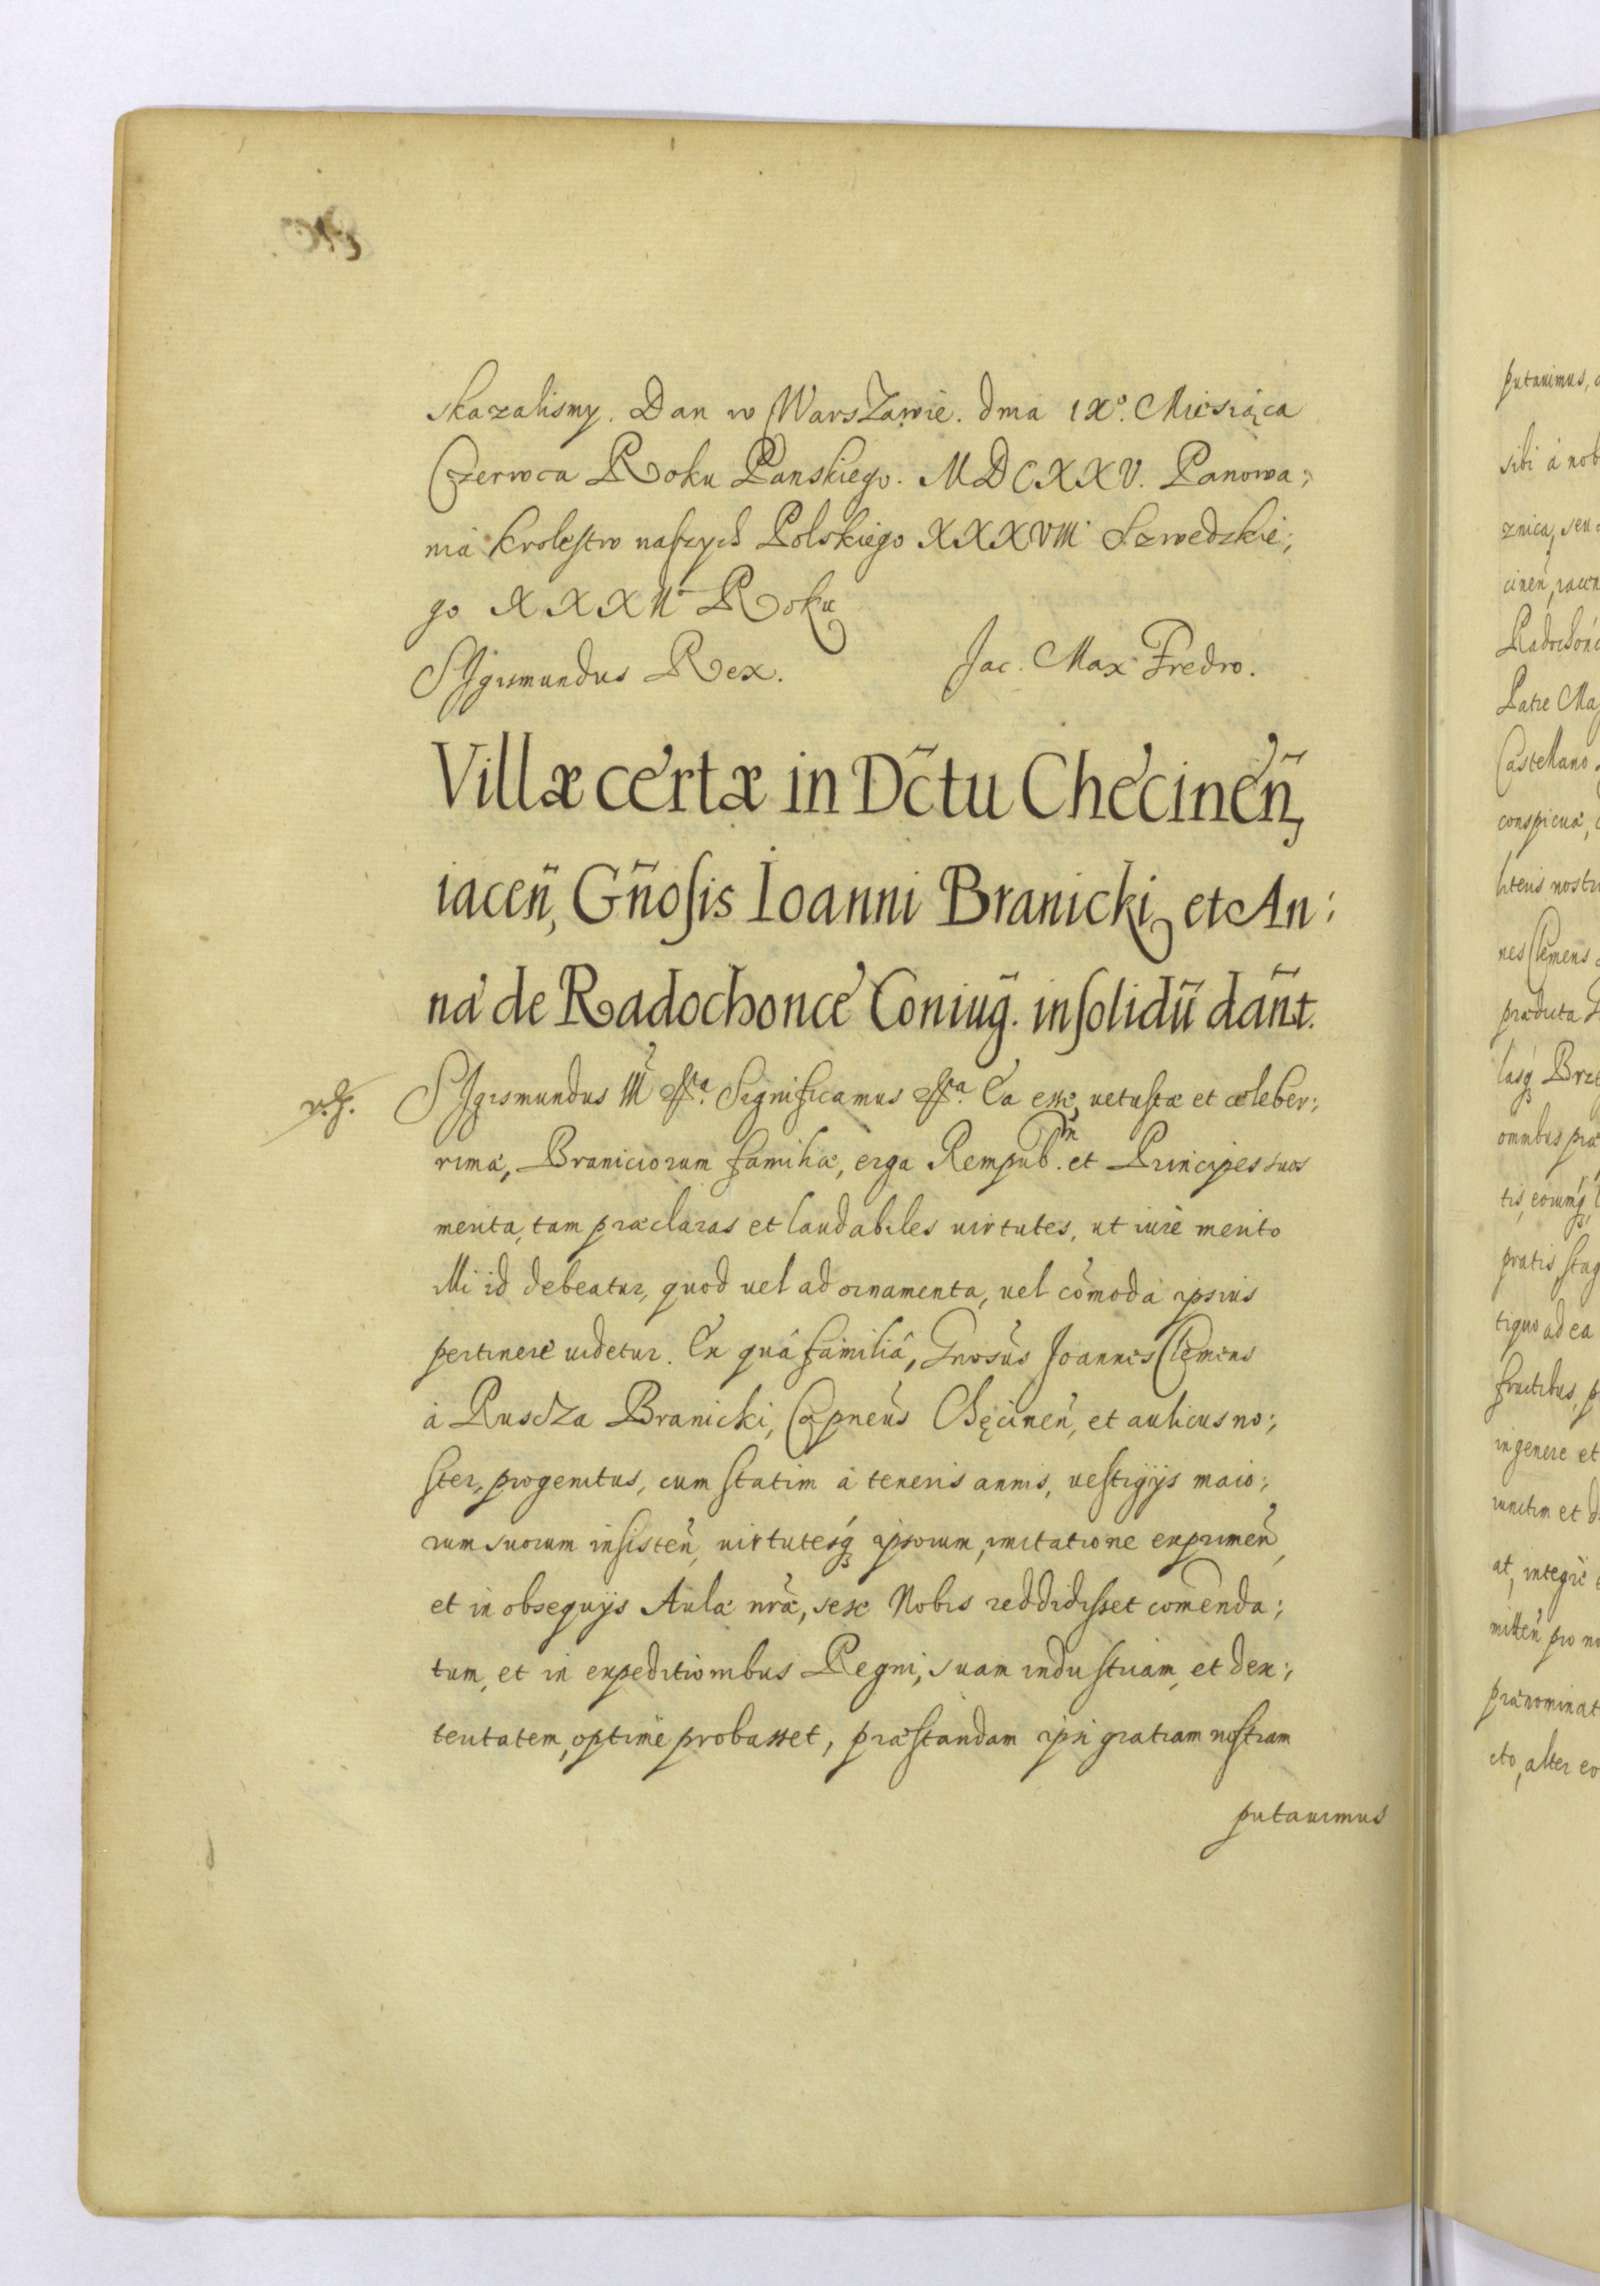 skazalismy. Dan w Warszawie. dnia IX°. Miesiąca
Czerwca Roku Panskiego. MDCXXV. Panowa;
nia krolestw naszych Polskiego XXXVIII Szwedzkie;
go XXXII Roku
SIgismundus Rex. Jac. Max Fredro.
Villæ certæ in Dc̃tu Checineñ,
iaceñ, Gñosis Ioanni Branicki, et An:
na de Radochonce Coniug̃. insolidũ dañt.
SIgismundus III Significamus Ea esse, uetustæ et celeber;
rimæ, Braniciorum familiæ, erga Rempub. et Principes suos
merita, tam præclaras et laudabiles uirtutes, ut iure merito
illi id debeatur, quod uel ad ornamenta, uel com̃oda ipsius
pertinere uidetur. Ex quâ familiâ, Gnosus Joannes Clemens
à Ruscza Branicki, Capneus Chęcineñ, et aulicus no;
ster, progenitus, cum statim à teneris annis, uestigijs maio;
rum suorum insisteñ, uirtutesq; ipsorum, imitatione exprimeñ,
et in obsequijs Aulæ nræ, sese Nobis reddidisset com̃enda;
tum, et in expeditionibus Regni, suam industriam, et dex;
teritatem, optime probasset, præstandam ipsi gratiam nostram
putauimus
putauimus,
sibi à nob
znica, seu
cineñ,
Radochon
Patre Ma
Castellano
conspicua,
literis nostri
nes Clemens
prædicta
lasq; Brze
omnibus præ
tis, eorumq;
pratis, stag
tiquo ad ea
fructibus, p
in genere et
iunctim et d
at, integre
mitteñ pro no
prænominat
cto, alter eo